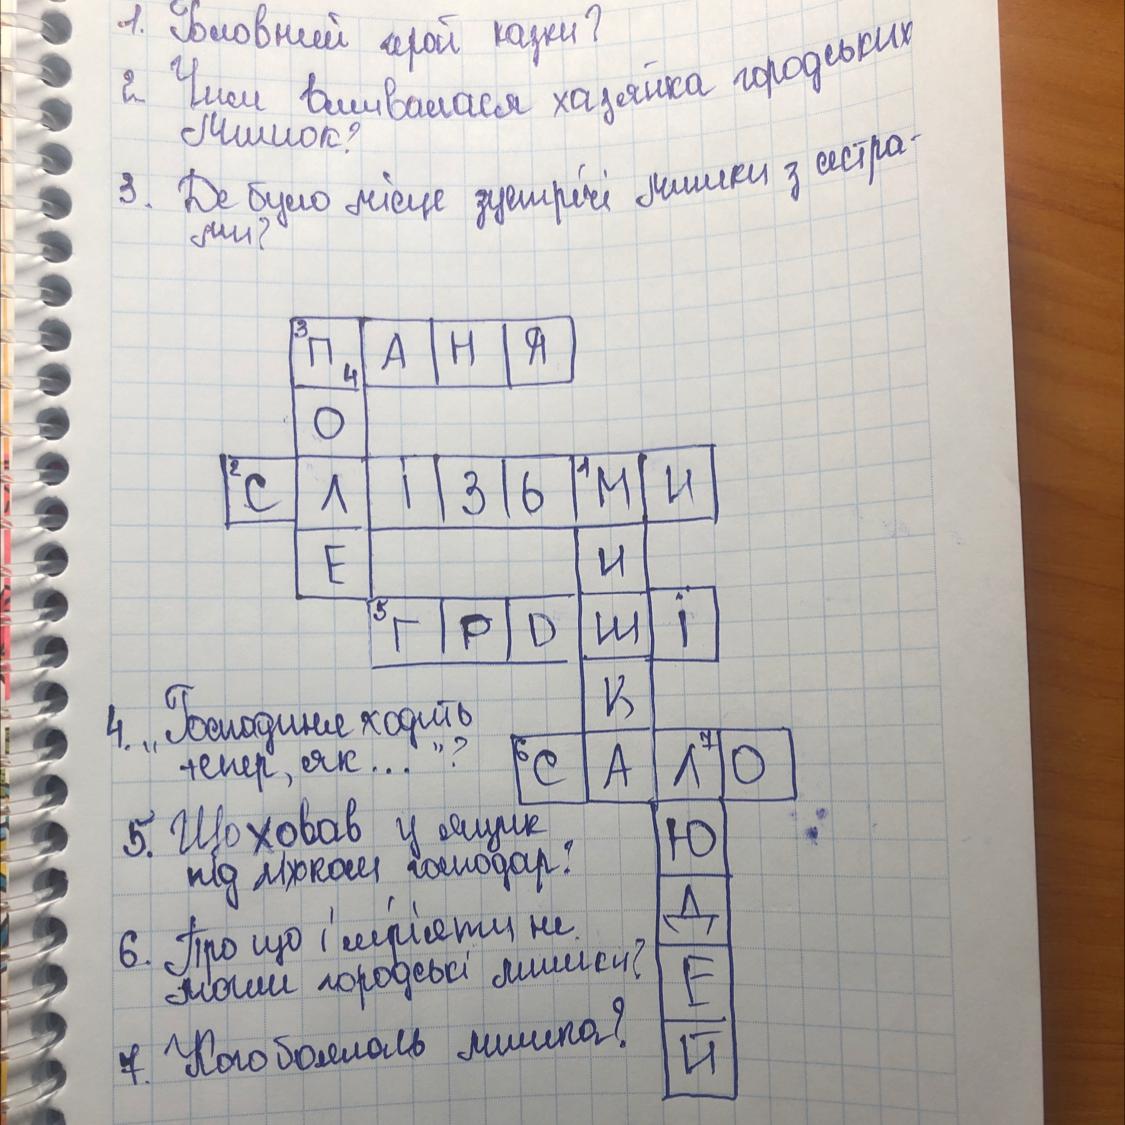 1. Головний герой казки?
2. Чим вмивалася хазяйка городських
мишок?
3. Де було місце зустрічі мишки з сестра-
ми?
3 П 4 А Н Я
О
2 С Л І З Ь 1 М И
Е И
5 Г Р О Ш І
К
4. „Господиня ходить
тепер, як..."?
6 С А Л 7 О
5. Що ховав у ящик
під ліжком господар?
Ю
Д
6. Про що і мріяти не
могли городські мишки?
Е
7. Кого боялась мишка?
Й